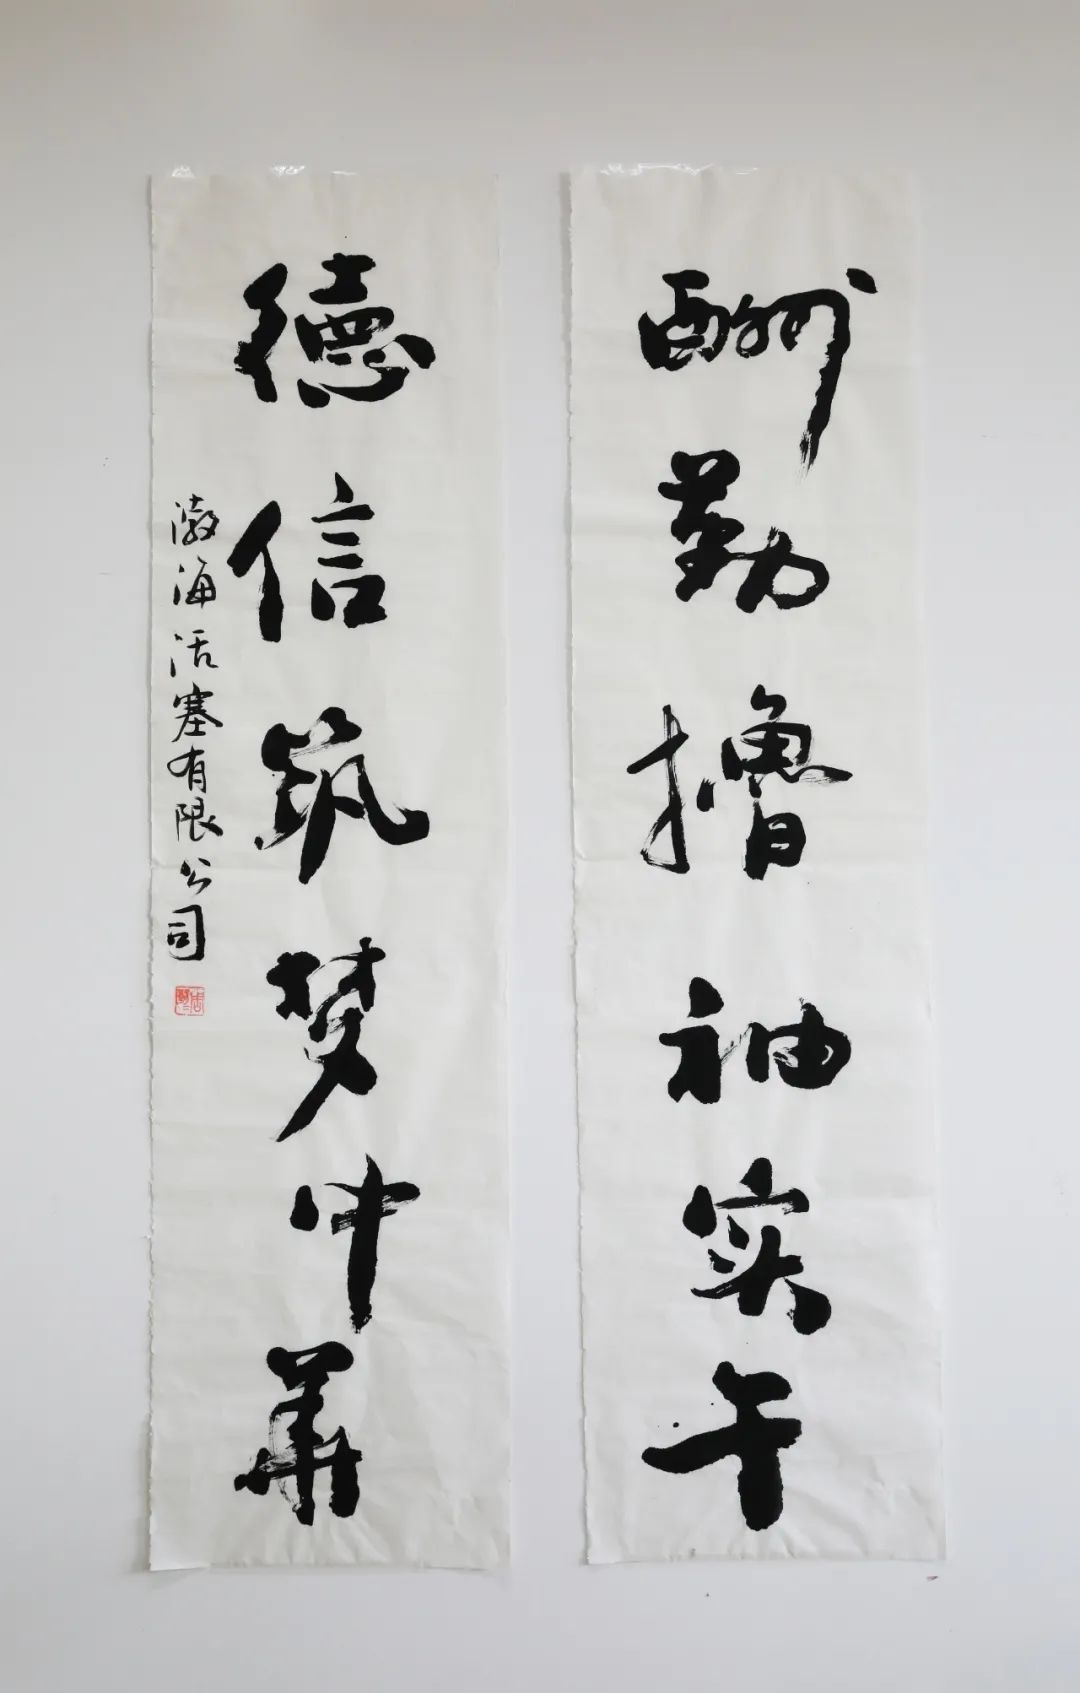 酬勤撸袖实干
德信筑梦中华
渤海活塞有限公司